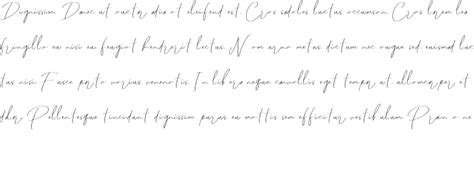 Dignissim Donec at auctor odio at eleifend est. Cras sodales luctus accumsan. Cras lorem leo
fringilla eu nisi eu feugiat hendrerit lectus. Nam arno metus dictum nec augue sed, euismod luc
tus nisi. Fusce porto varius venenatis. In libero neque convallis eget tempor at, ullamcorper et
Pellentesque tincidunt dignissim purus eu mattis sem efficitur vestibulum Proin o ne